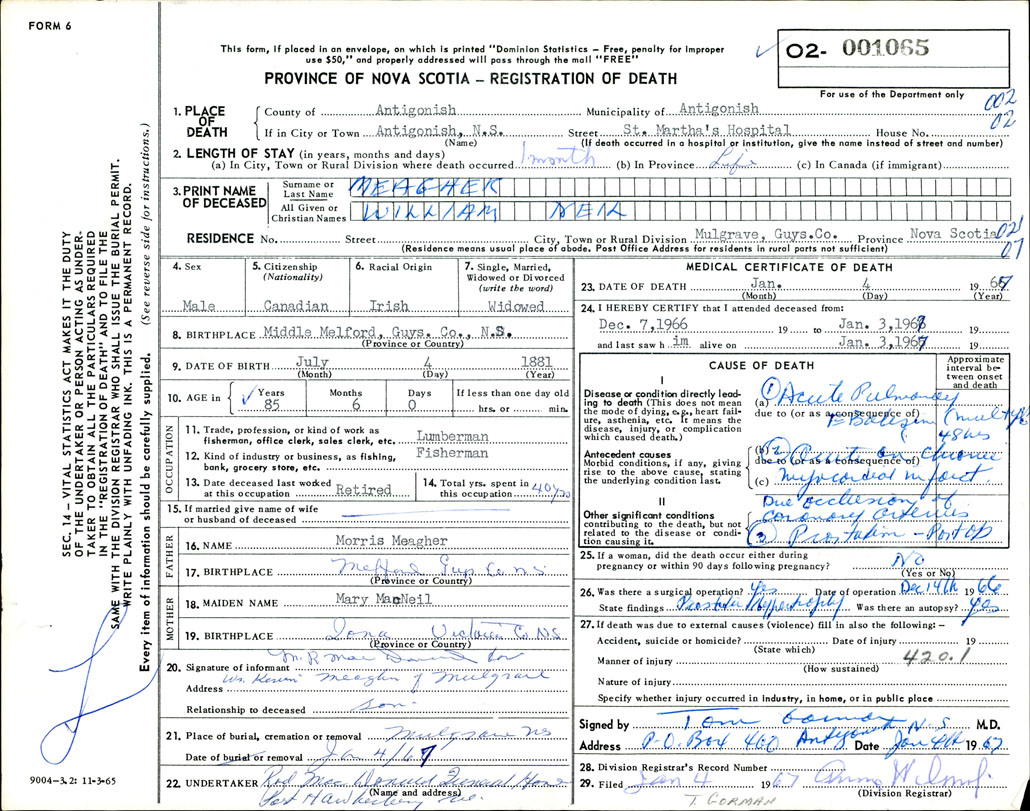 FORM 6
This form, if placed in an envelope, on which is printed "Dominion Statistics – Free, penalty for improper
use $50," and properly addressed will pass through the mail "FREE"
PROVINCE OF NOVA SCOTIA – REGISTRATION OF DEATH
02- 001065
For use of the Department only
002
02
1. PLACE OF DEATH
County of Antigonish Municipality of Antigonish
If in City or Town Antigonish, N.S. Street St. Martha's Hospital House No.
(Name) (If death occurred in a hospital or institution, give the name instead of street and number)
2. LENGTH OF STAY (in years, months and days)
(a) In City, Town or Rural Division where death occurred 1 month (b) In Province Life (c) In Canada (if immigrant)
3. PRINT NAME OF DECEASED
Surname or Last Name MEAGHER
All Given or Christian Names WILLIAM NEIL
RESIDENCE No. Street City, Town or Rural Division Mulgrave, Guys.Co. Province Nova Scotia
(Residence means usual place of abode. Post Office Address for residents in rural parts not sufficient)
07
4. Sex Male
5. Citizenship (Nationality) Canadian
6. Racial Origin Irish
7. Single, Married, Widowed or Divorced (write the word) Widowed
8. BIRTHPLACE Middle Melford, Guys. Co., N.S.
(Province or Country)
9. DATE OF BIRTH July 4 1881
(Month) (Day) (Year)
10. AGE in Years 85 Months 6 Days 0 If less than one day old hrs. or min.
OCCUPATION
11. Trade, profession, or kind of work as fisherman, office clerk, sales clerk, etc. Lumberman
12. Kind of industry or business, as fishing, bank, grocery store, etc. Fisherman
13. Date deceased last worked at this occupation Retired
14. Total yrs. spent in this occupation 40 yrs
15. If married give name of wife or husband of deceased
FATHER
16. NAME Morris Meagher
17. BIRTHPLACE Melford Guys Co NS
(Province or Country)
MOTHER
18. MAIDEN NAME Mary MacNeil
19. BIRTHPLACE Iona Victoria Co NS
(Province or Country)
20. Signature of informant for
Address Meagher of Mulgrave
Relationship to deceased son
21. Place of burial, cremation or removal Mulgrave NS
Date of burial or removal Jan 4/67
22. UNDERTAKER Rod MacDonald Funeral Home
(Name and address)
Port Hawkesbury
MEDICAL CERTIFICATE OF DEATH
23. DATE OF DEATH Jan. 4 1967
(Month) (Day) (Year)
24. I HEREBY CERTIFY that I attended deceased from:
Dec. 7,1966 19 to Jan. 3,1967 19
and last saw him alive on Jan. 3,1967 19
CAUSE OF DEATH
Approximate interval between onset and death
I
Disease or condition directly leading to death (This does not mean the mode of dying, e.g., heart failure, asthenia, etc. It means the disease, injury, or complication which caused death.)
(a) 1 Acute Pulmonary
due to (or as a consequence of) Embolism (multiple
48 hrs
Antecedent causes
Morbid conditions, if any, giving rise to the above cause, stating the underlying condition last.
(b) 2 Acute on chronic
due to (or as a consequence of)
(c) Myocardial infarct.
Due occlusion of
coronary arteries
II
Other significant conditions
contributing to the death, but not related to the disease or condition causing it.
3 Prostatism – Post Op
25. If a woman, did the death occur either during pregnancy or within 90 days following pregnancy? No
(Yes or No)
26. Was there a surgical operation? Yes Date of operation Dec 14th 1966
State findings Prostatic Hypertrophy Was there an autopsy? Yes
27. If death was due to external causes (violence) fill in also the following: –
Accident, suicide or homicide? Date of injury 19
(State which)
Manner of injury 420.1
(How sustained)
Nature of injury
Specify whether injury occurred in industry, in home, or in public place
Signed by Tom Gorman N.S. M.D.
Address P.O. Box 460 Antigonish Date Jan 4th 1967
28. Division Registrar's Record Number
29. Filed Jan 4 1967
(Division Registrar)
T. GORMAN
SEC. 14 – VITAL STATISTICS ACT MAKES IT THE DUTY
OF THE UNDERTAKER OR PERSON ACTING AS UNDER-
TAKER TO OBTAIN ALL THE PARTICULARS REQUIRED
IN THE "REGISTRATION OF DEATH" AND TO FILE THE
SAME WITH THE DIVISION REGISTRAR WHO SHALL ISSUE THE BURIAL PERMIT.
WRITE PLAINLY WITH UNFADING INK. THIS IS A PERMANENT RECORD.
Every item of information should be carefully supplied. (See reverse side for instructions.)
9004-3.2: 11-3-65